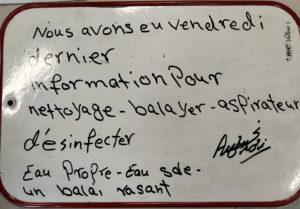 Nous avons eu vendredi
dernier
information Pour
nettoyage - balayer - aspirateur
désinfecter
Eau Propre - Eau sale -
un balai rasant